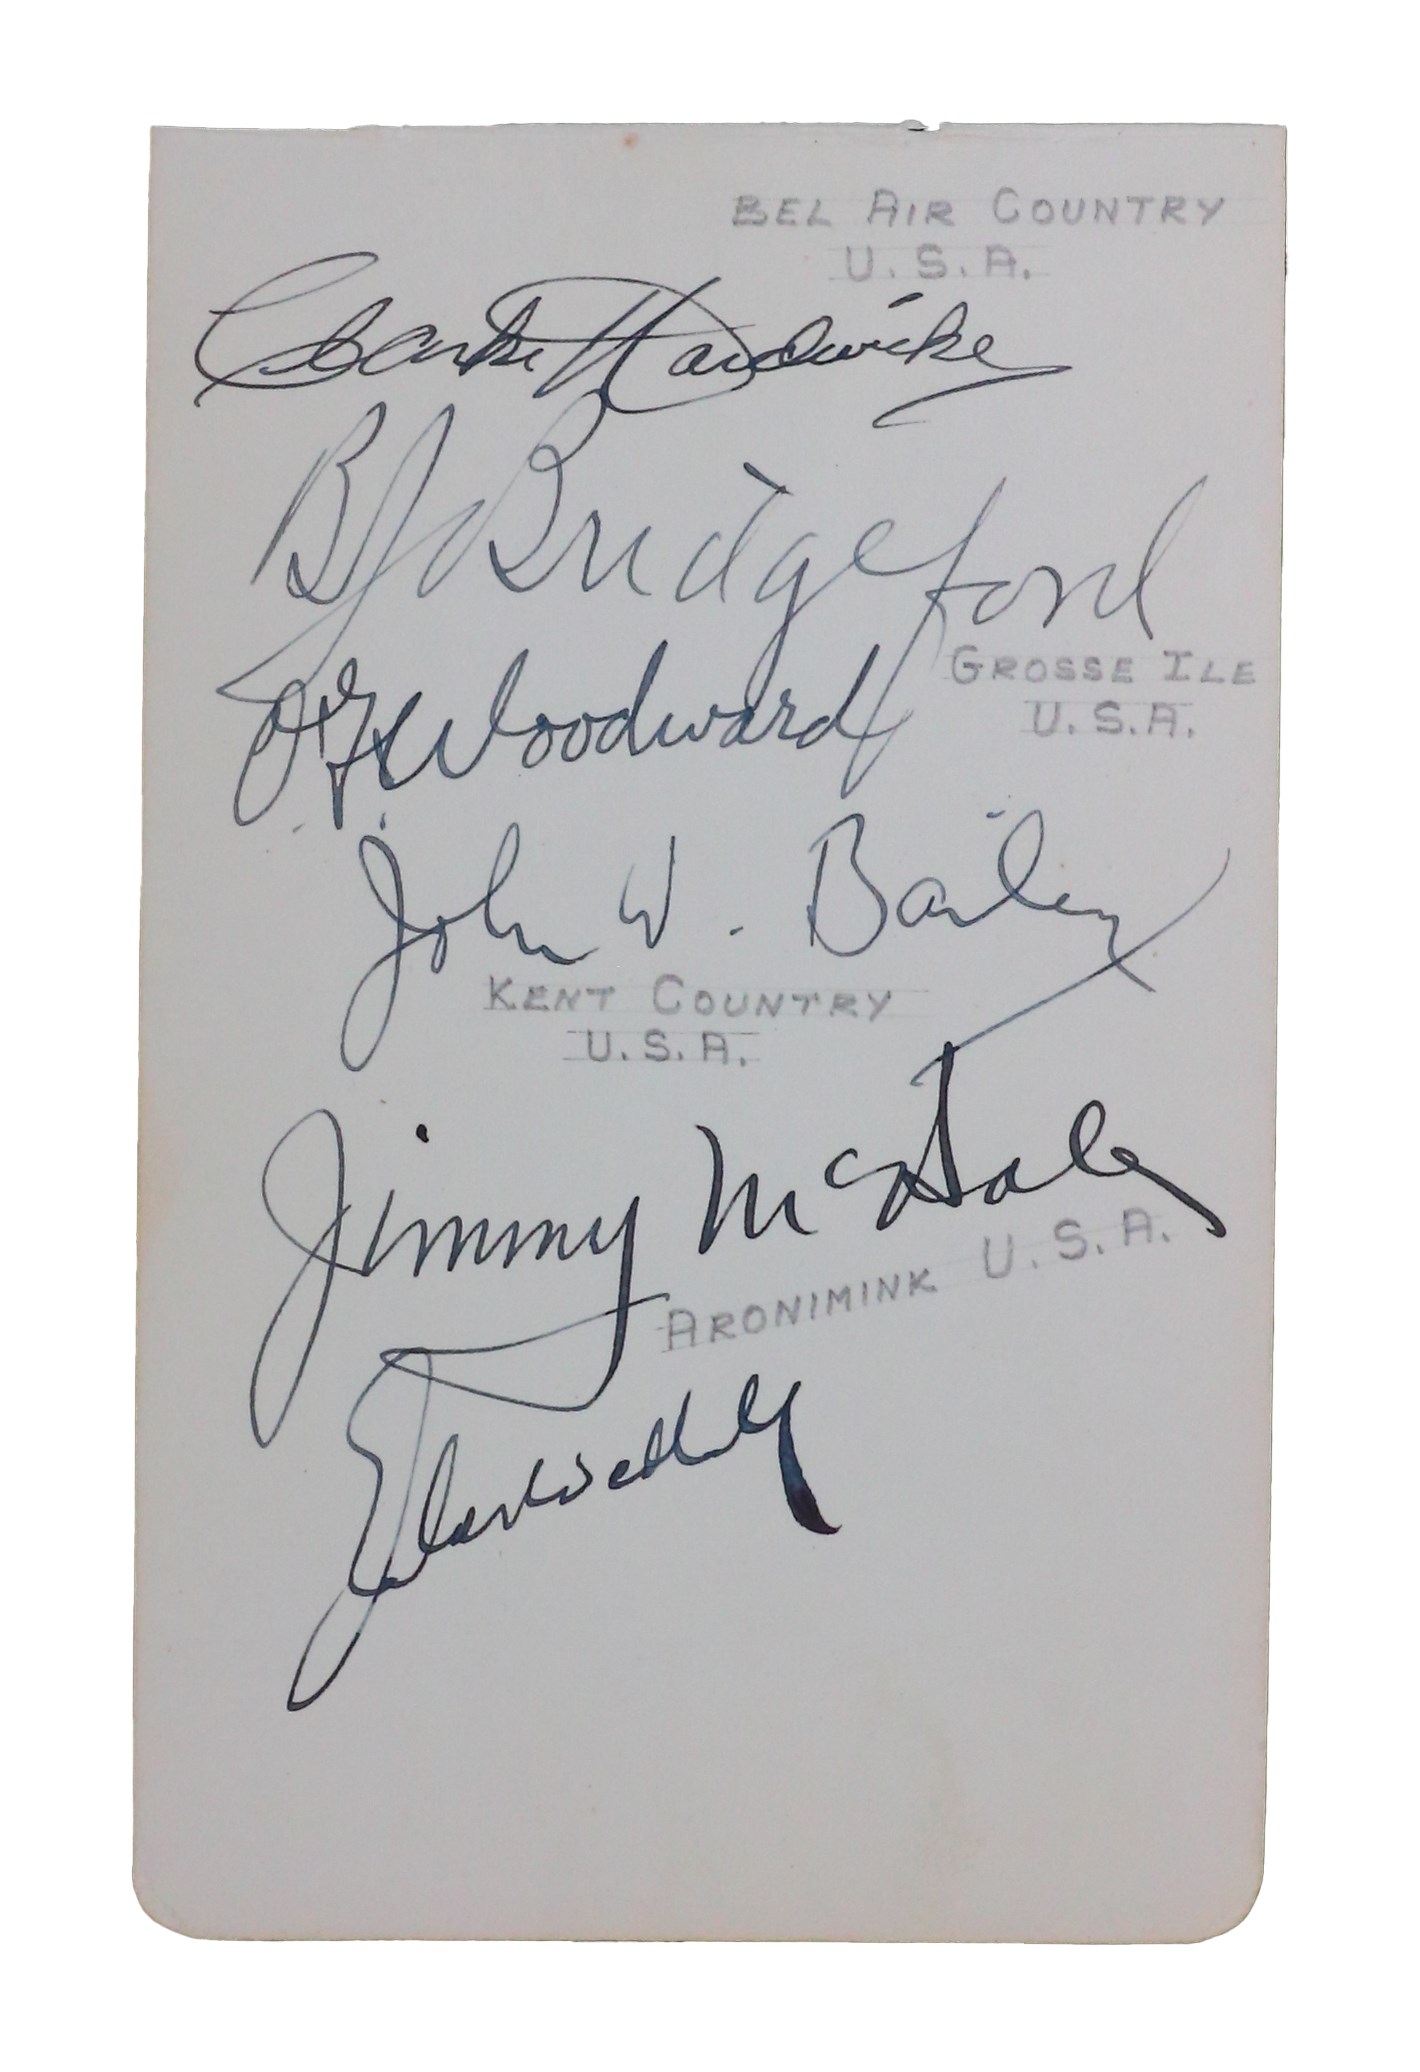 BEL AIR COUNTRY
U.S.A.
Clarke Hardwicke
B J Bridgeford
GROSSE ILE
U.S.A.
Woodward
John W. Bailey
KENT COUNTRY
U.S.A.
Jimmy McHale
ARONIMINK U.S.A.